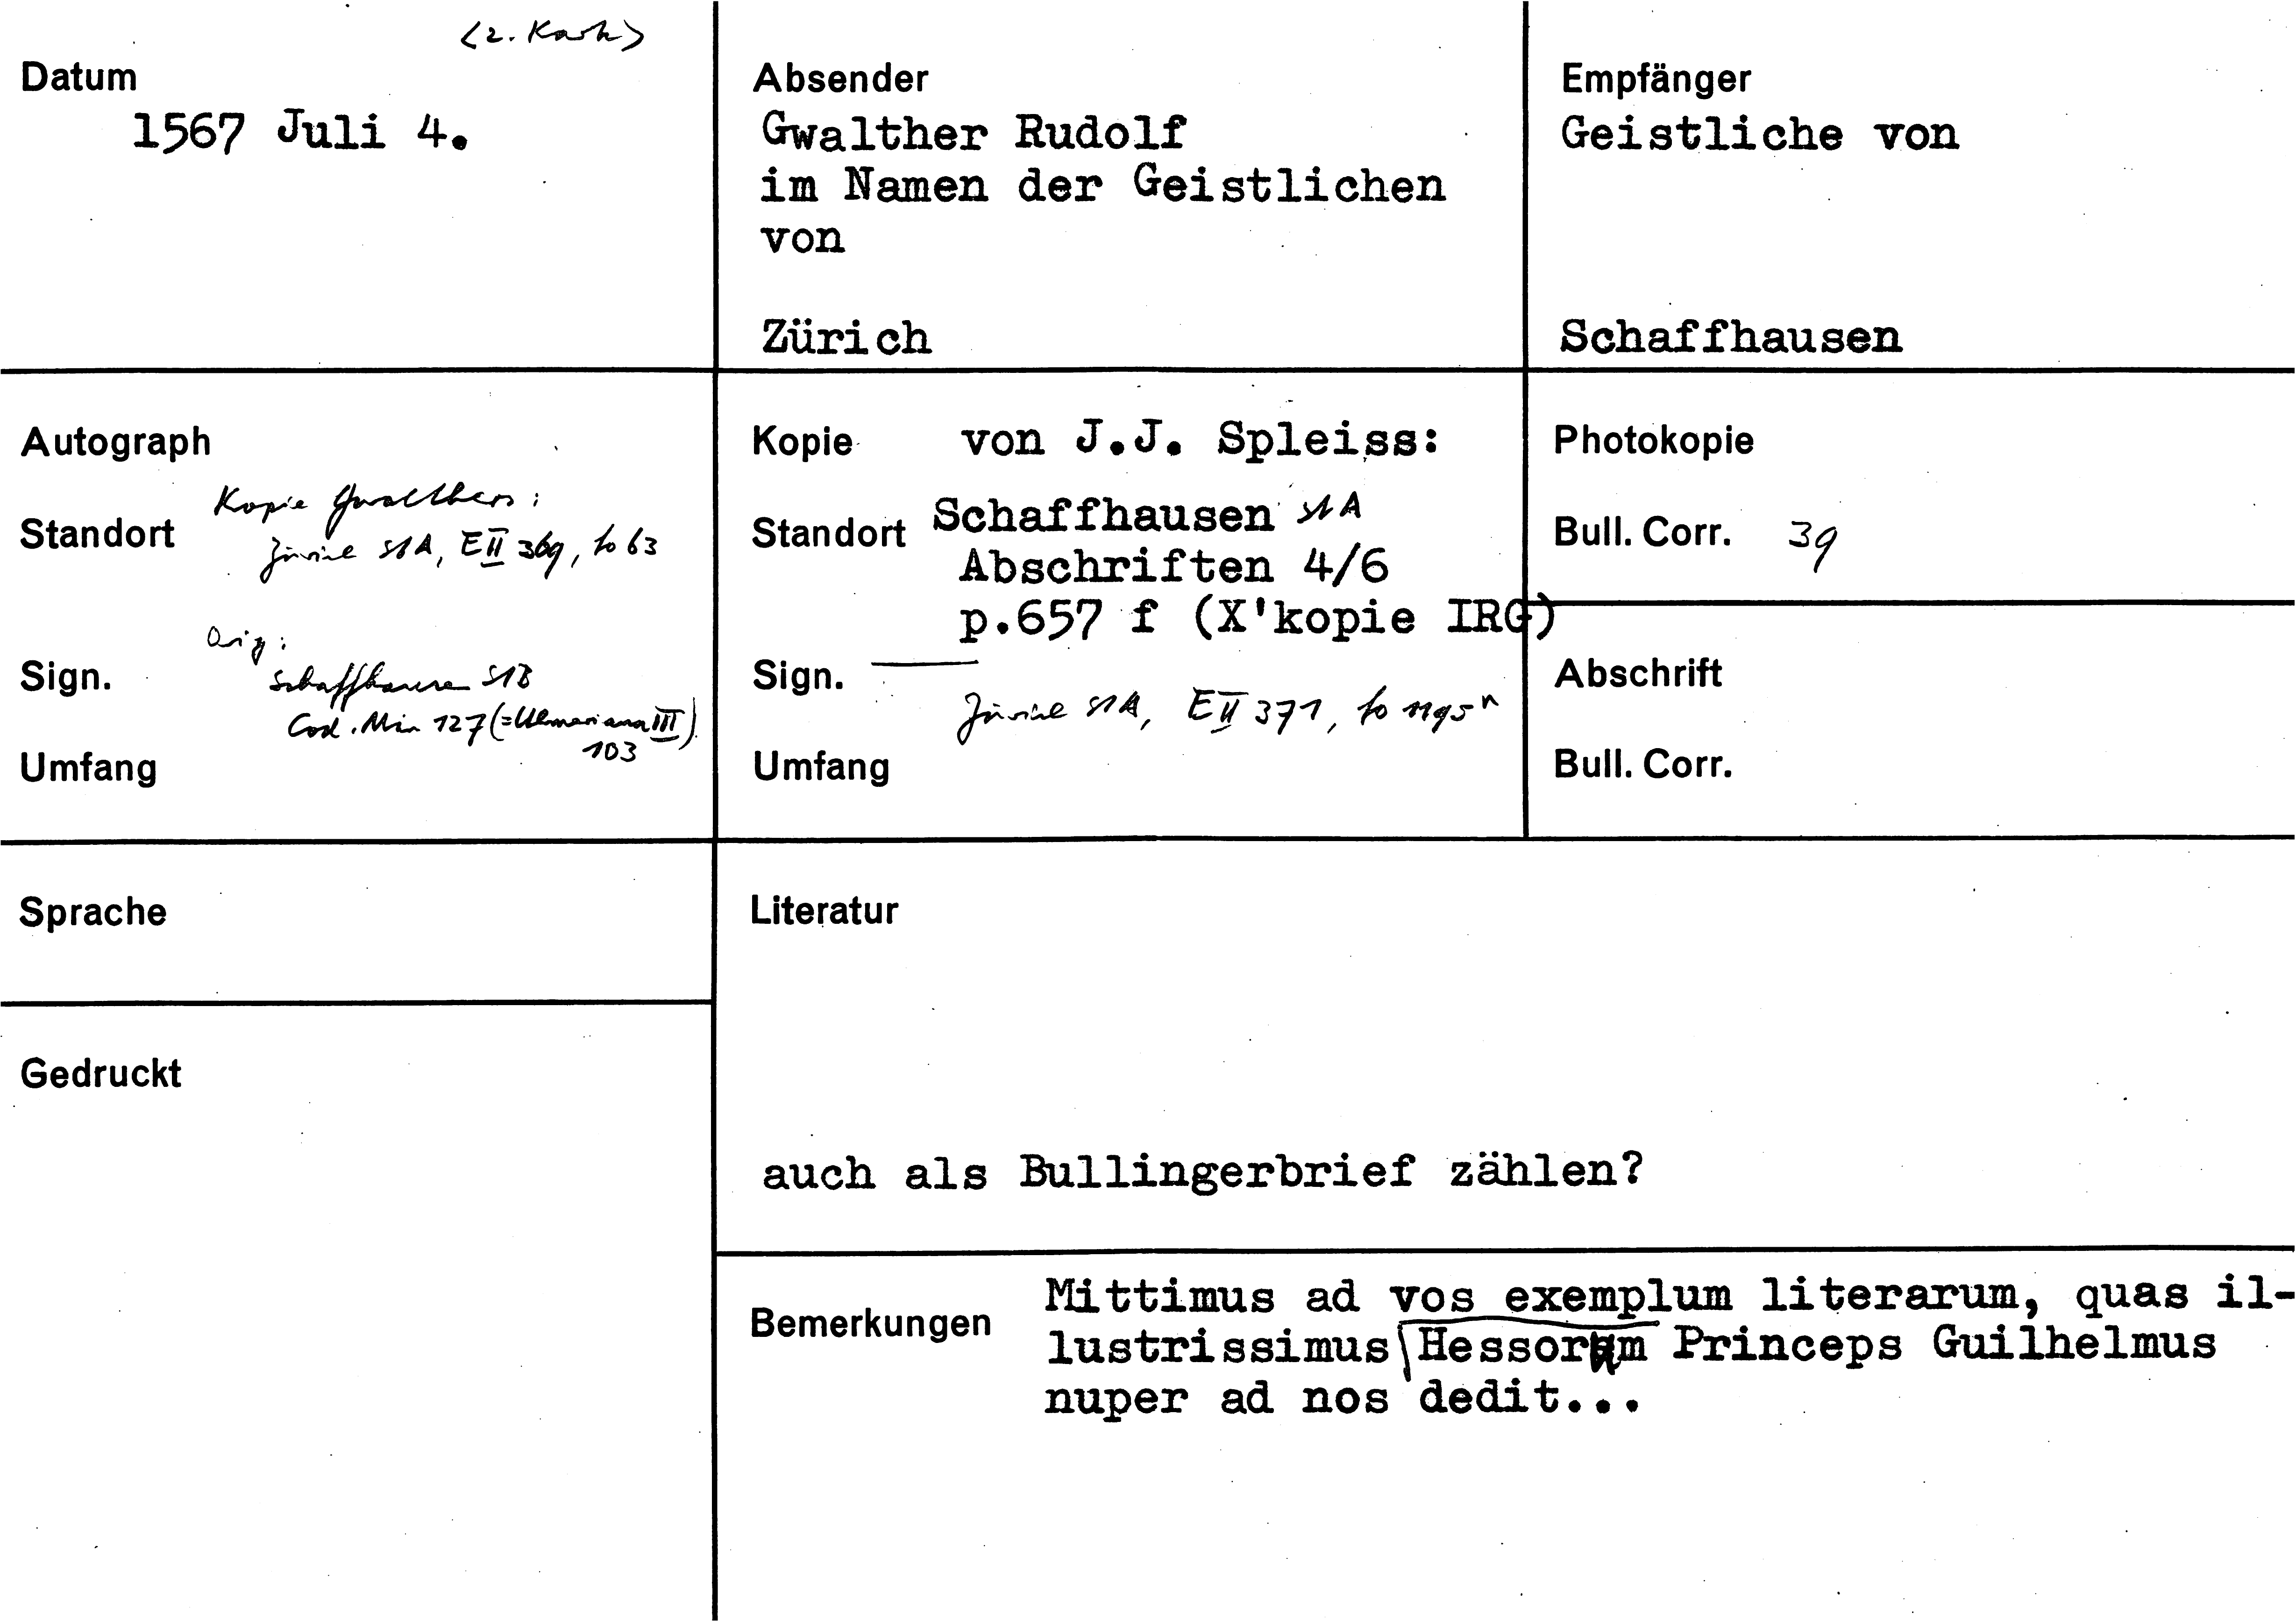 <2. Karte>
Datum
1567 Juli 4.
Absender
Gwalther Rudolf
im Namen der Geistlichen
von
Zürich
Empfänger
Geistliche von
Schaffhausen
Autograph
Kopie Gwalthers:
Standort
Zürich StA, E II 369, fo 63
Orig:
Sign.
Schaffhausen StB
Cod. Min 127 (=Ulmeriana III)
103
Umfang
Kopie von J.J. Spleiss:
Standort Schaffhausen StA
Abschriften 4/6
p.657 f (X'kopie IRG)
Sign.
Zürich StA, E II 371, fo 1195 r
Umfang
Photokopie
Bull. Corr. 39
Abschrift
Bull. Corr.
Sprache
Literatur
auch als Bullingerbrief zählen?
Gedruckt
Bemerkungen
Mittimus ad vos exemplum literarum, quas il-
lustrissimus Hessorum Princeps Guilhelmus
nuper ad nos dedit...